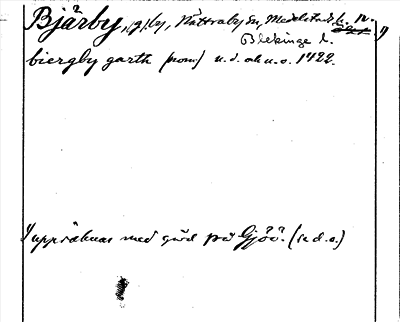 Bjärby, g. by, Nättraby sn, Medelstads h. 1)
Blekinge l.
biergby garth (nom) u.d. ak u.o. 1422.
1) uppräknas med gård på Gjöö. (se d.o.)